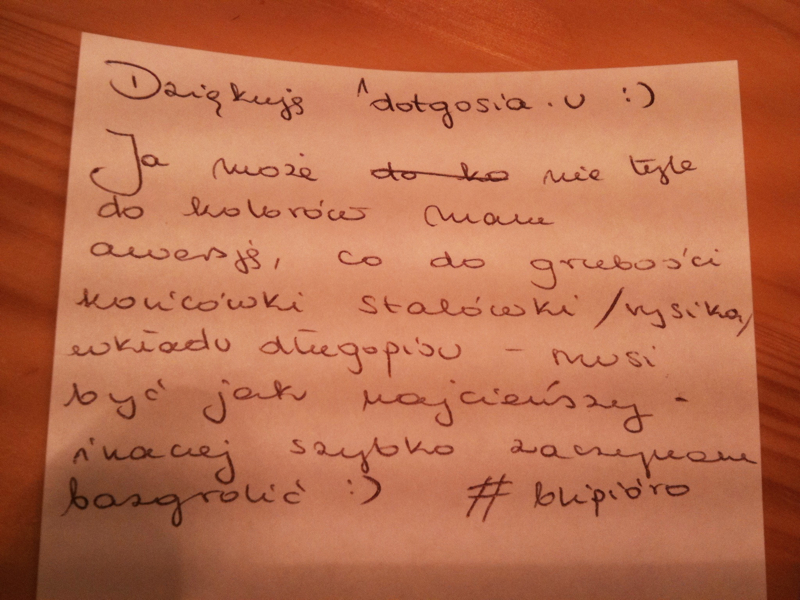 Dziękuję ^dotgosia.u :)
Ja może do ko nie tyle
do kolorów mam
awersję, co do grubości
końcówki stalówki /rysika/
wkładu długopisu - musi
być jak najcieńszy -
inaczej szybko zaczynam
bazgrolić :) #blipióro